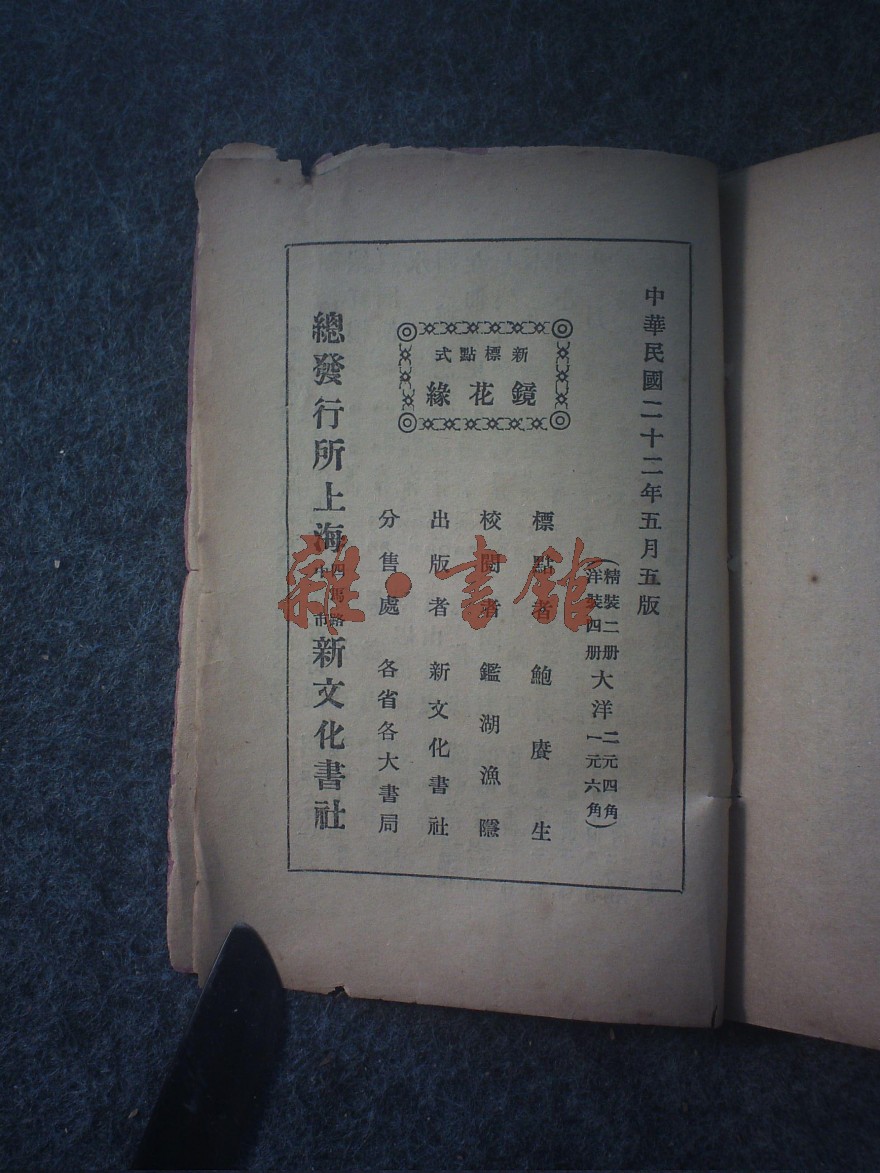 中華民國二十二年五月五版
(精裝二册 大洋 二元四角)
洋裝四册 一元六角
新標點式
鏡花緣
標點者 鮑賡生
校閱者 鑑湖漁隱
出版者 新文化書社
分售處 各省各大書局
總發行所上海四馬路中市新文化書社
雜·書館